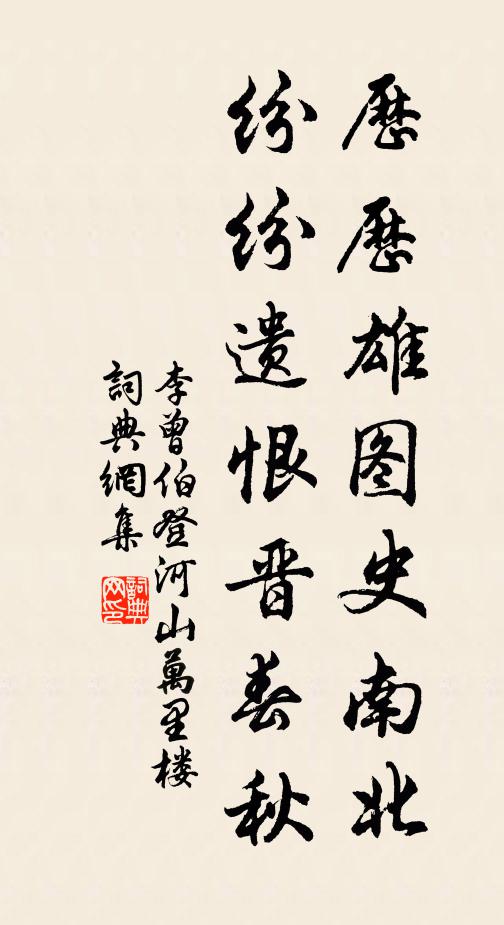 歷歷雄图史南北
纷纷遗恨晋春秋
李曾伯登河山萬里楼
詞典網集
詞典
网印